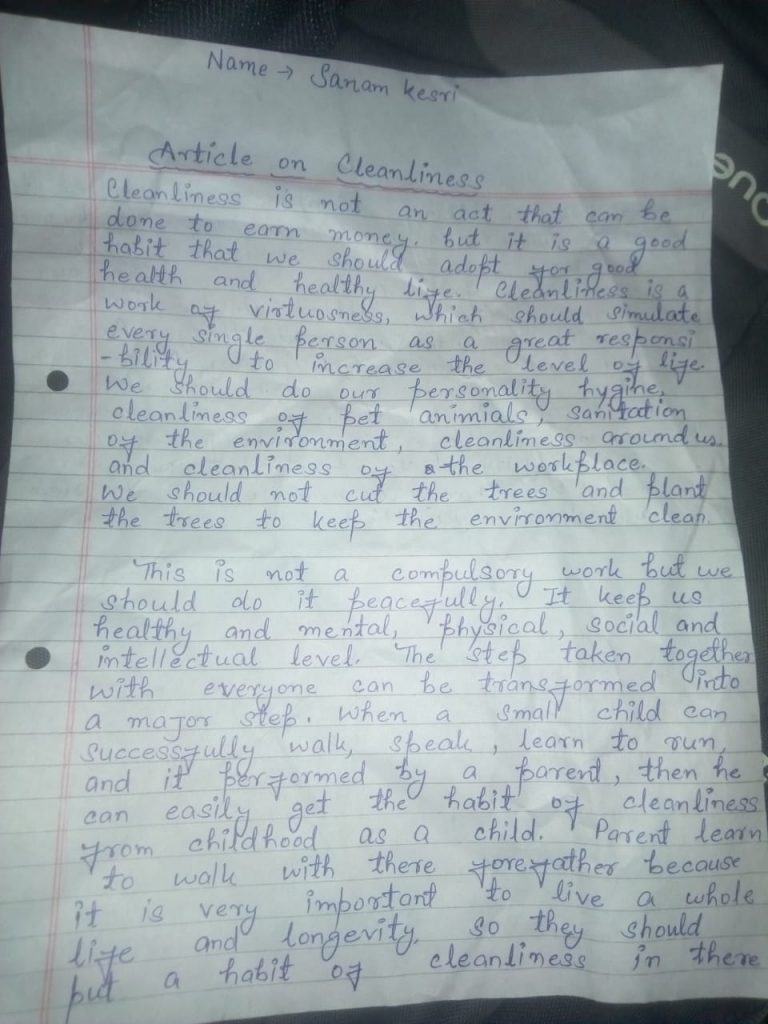 Name → Sanam kesri
Article on Cleanliness
Cleanliness is not an act that can be
done to earn money. but it is a good
habit that we should adopt for good
health and healthy life. Cleanliness is a
work of virtuosness, which should simulate
every single person as a great responsi
-bility to increase the level of life.
We should do our personality hygine,
cleanliness of pet animials, sanitation
of the environment, cleanliness around us.
and cleanliness of the workplace.
We should not cut the trees and plant
the trees to keep the environment clean.
This is not a compulsory work but we
should do it peacefully. It keep us
healthy and mental, physical, social and
intellectual level. The step taken together
with everyone can be transformed into
a major step. When a small child can
successfully walk, speak, learn to run,
and it performed by a parent, then he
can easily get the habit of cleanliness
from childhood as a child. Parent learn
to walk with there forefather because
it is very important to live a whole
life and longevity, so they should
put a habit of cleanliness in there